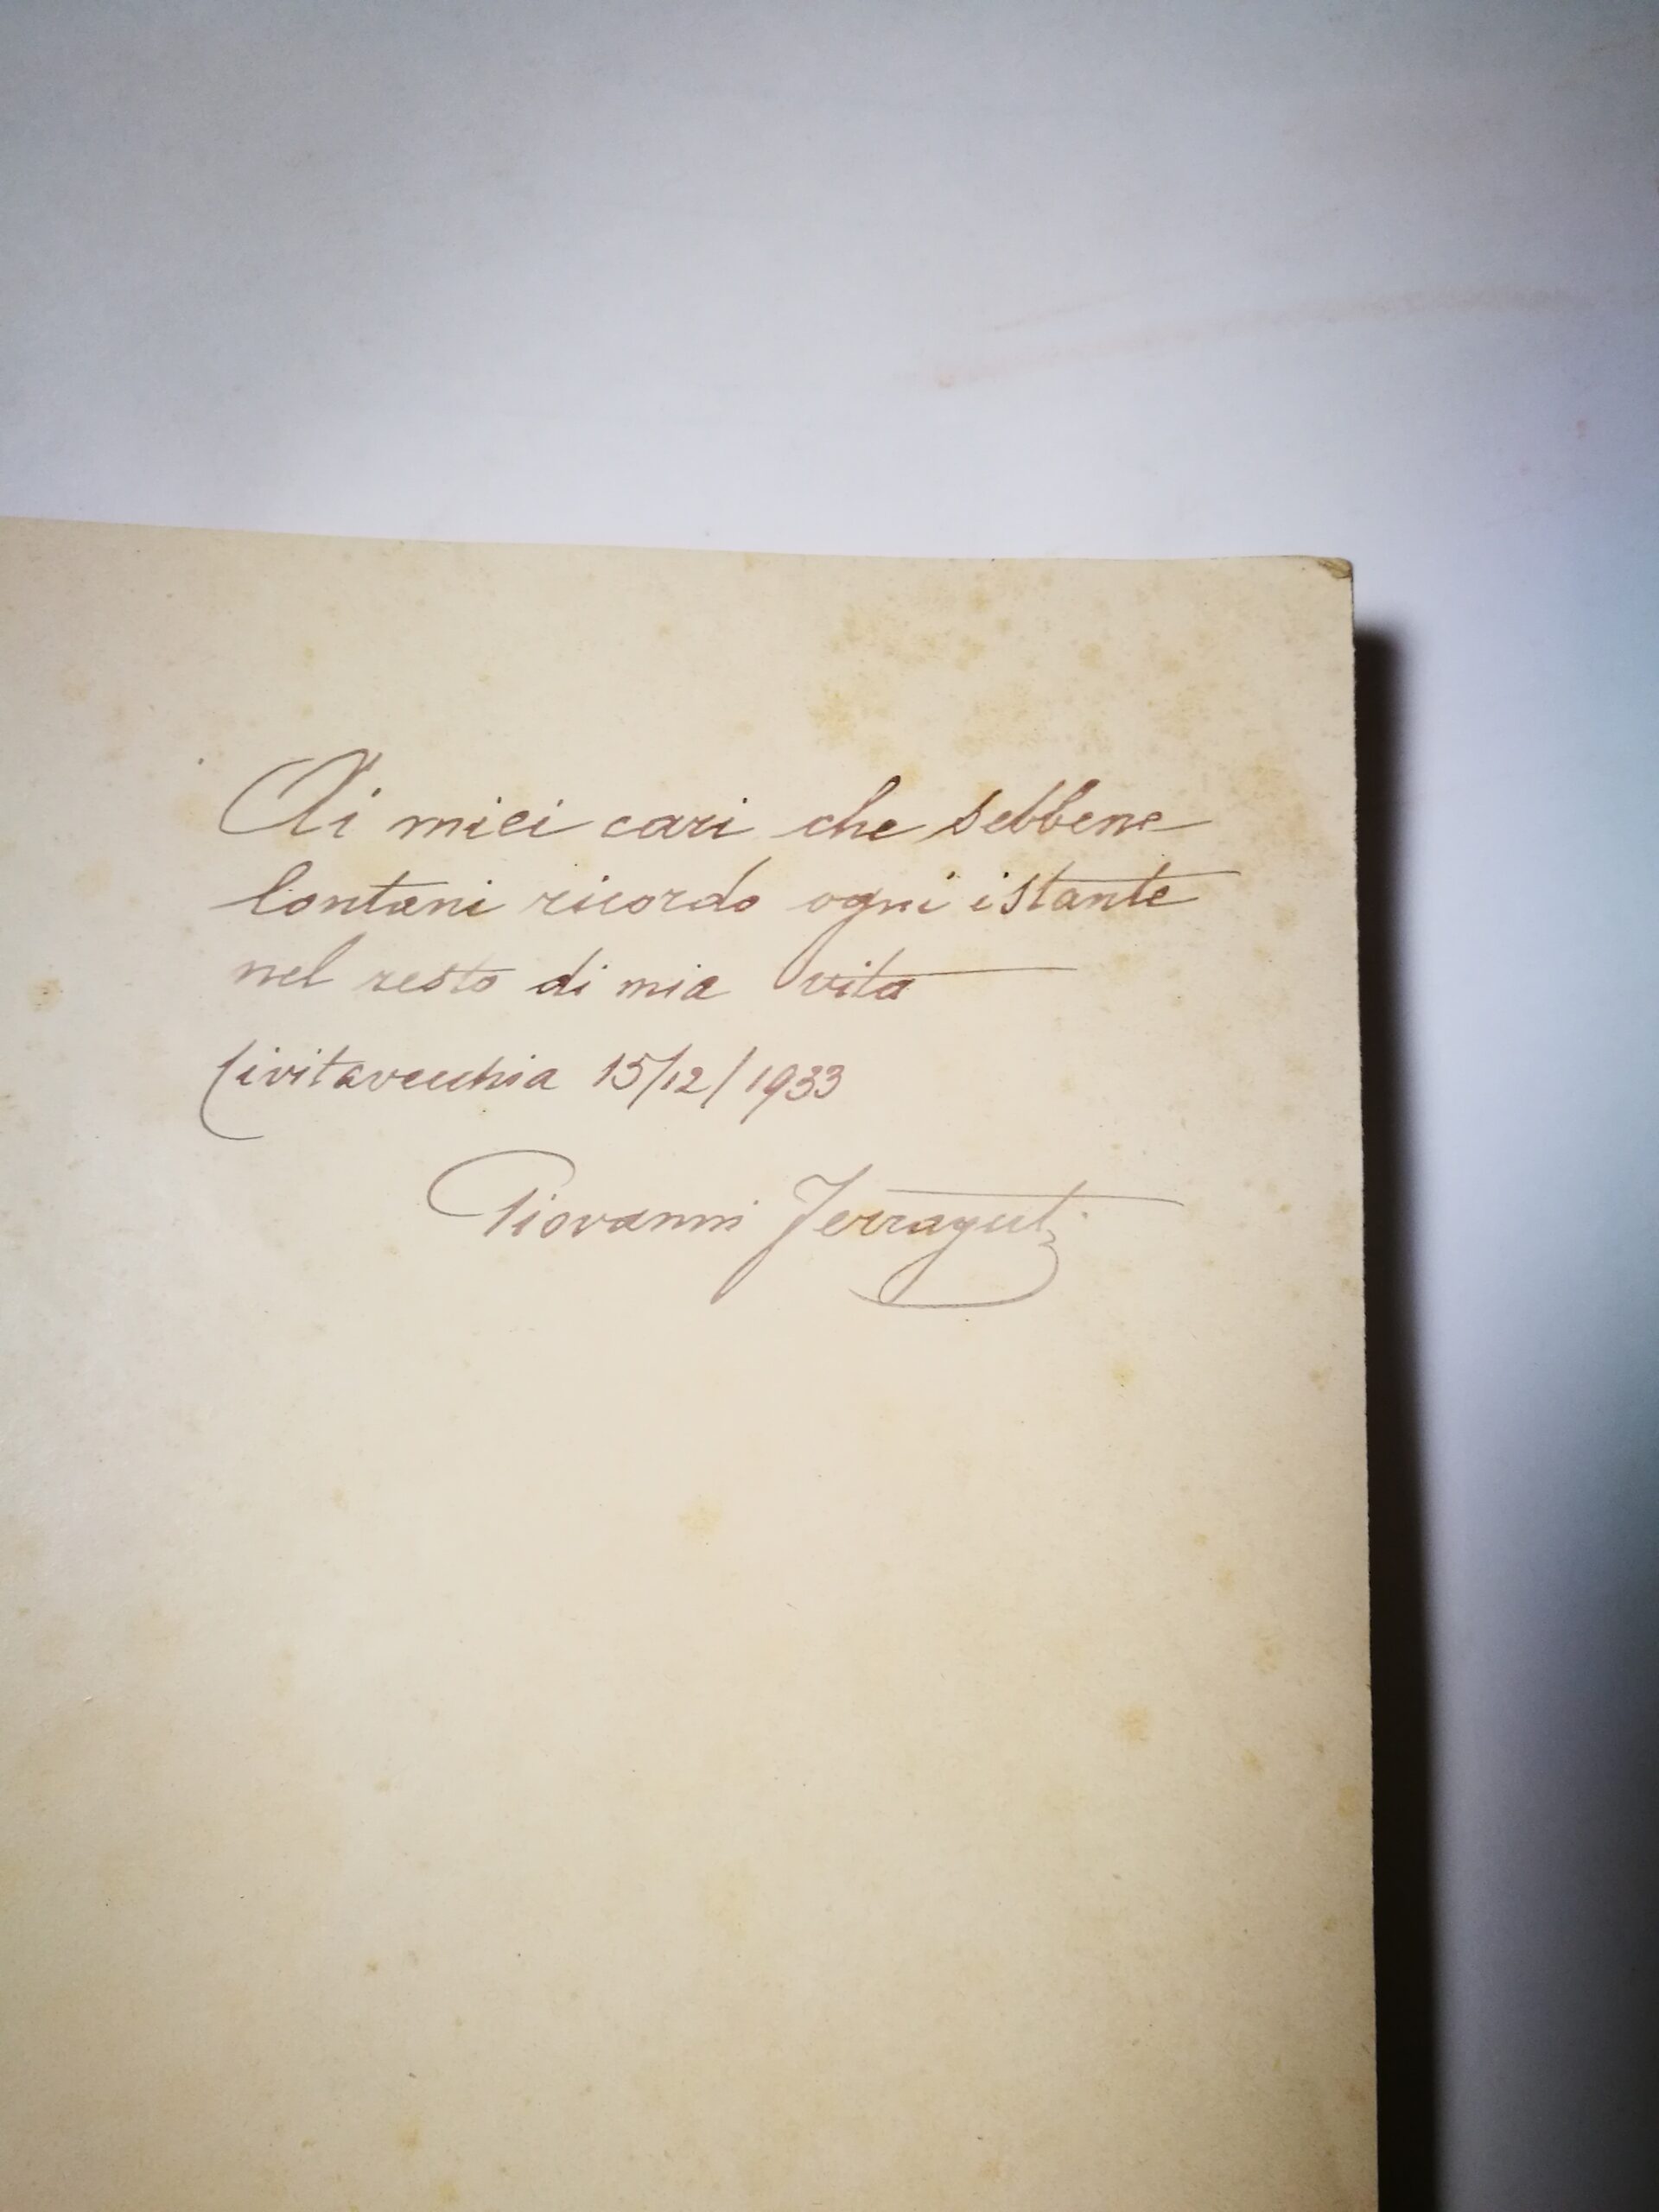 Ai miei cari che sebbene
lontani ricordo ogni istante
nel resto di mia vita
Civitavecchia 15/12/1933
Giovanni Ferraguti